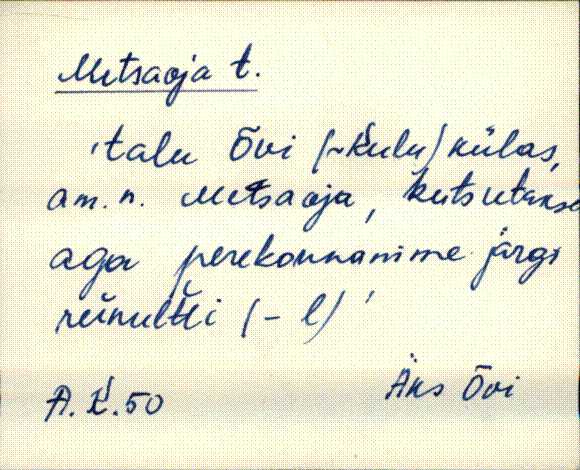 Metsaoja t.
'talu Õvi (~Kulu) külas,
am. n. Metsaoja, kutsutakse
aga perekonnanime järgi
reinultti (-l)'
A. K. 50
Äks Õvi